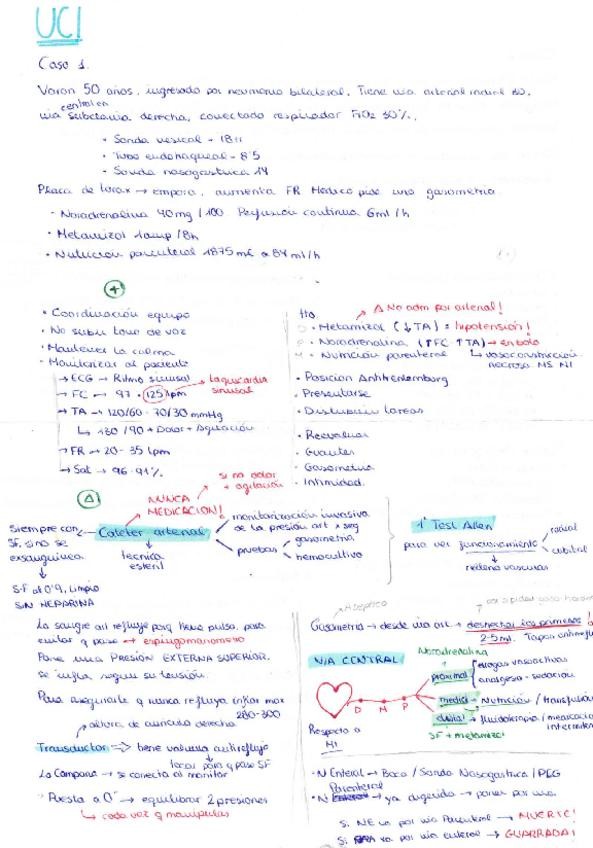 UCI
Caso 1.
Varon 50 años, ingresado por neumonia bilateral. Tiene via arterial radial
central en
via subclavia derecha, conectado respirador FiO2 30%,
• Sonda vesical - 18
• Tubo endotraqueal - 8'5
• Sonda nasogastrica 14
Placa de torax → empora, aumenta FR Medico pide una gasometria
• Noradrenalina 40mg/100. Perfusion continua 6ml/h
• Metamizol 1amp/8h
• Nutricion parenteral 1875 a 84 ml/h
+
• Coordinación equipo
• No subir tono de voz
• Mantener la calma
• Monitorizar al paciente
→ ECG → Ritmo sinusal
→ FC → 97 • 125 lpm
taquicardia sinusal
→ TA → 120/60 - 70/30 mmHg
↳ 130/90 + Dolor + Agitación
→ FR → 20 - 35 rpm
→ Sat → 96-91%
tto.
△ No adm por arterial!
• Metamizol (↓TA) = hipotensión!
• Noradrenalina (↑FC ↑TA) → en bolo
• Nutrición parenteral
↳ vasoconstricción
necrosis MS MI
• Posicion Antitrendelemburg
• Presentarse
• Distribuir tareas
• Reevaluar
• Guantes
• Gasometria
• Intimidad.
△
NUNCA
MEDICACION!
si no dolor
+ agitación
Siempre con
SF, si no se
exsanguinea
↓
SF al 0'9, limpio
SIN HEPARINA
Cateter arterial
tecnica
esteril
monitorización invasiva
de la presión art x
pruebas
gasometria
hemocultivo
1º Test Allen
para ver funcionamiento
radial
cubital
redena vascular
La sangre art refluye porq tiene pulso, para
evitar q pase → esfingomanometro
Pone una PRESIÓN EXTERNA SUPERIOR.
se infla segun su tensión.
Para asegurarte q nunca refluya inflar max
280-300
altura de auricula derecha
Transductor ⇒ tiene valvula antireflujo
para q pase SF
La Campana → se conecta al monitor
Puesta a 0" → equilibrar 2 presiones
↳ cada vez q manipulas
Aseptico
Gasometria → desde via art → desechar los primeros!
2-5ml. Tapon antireflujo
VIA CENTRAL
Noradrenalina
D M P
proximal
drogas vasoactivas
analgesia - sedacion
medial → Nutrición/transfusión
distal → fluidoterapia/medicacion
intermitente
SF + metamizol
Respecto a
MI
• N Enteral → Boca / Sonda Nasogastrica / PEG
Parenteral
• N → ya digerido → poner por via.
Si NE va por via Parenteral → MUERTE!
Si va por via enteral → GUARRADA!